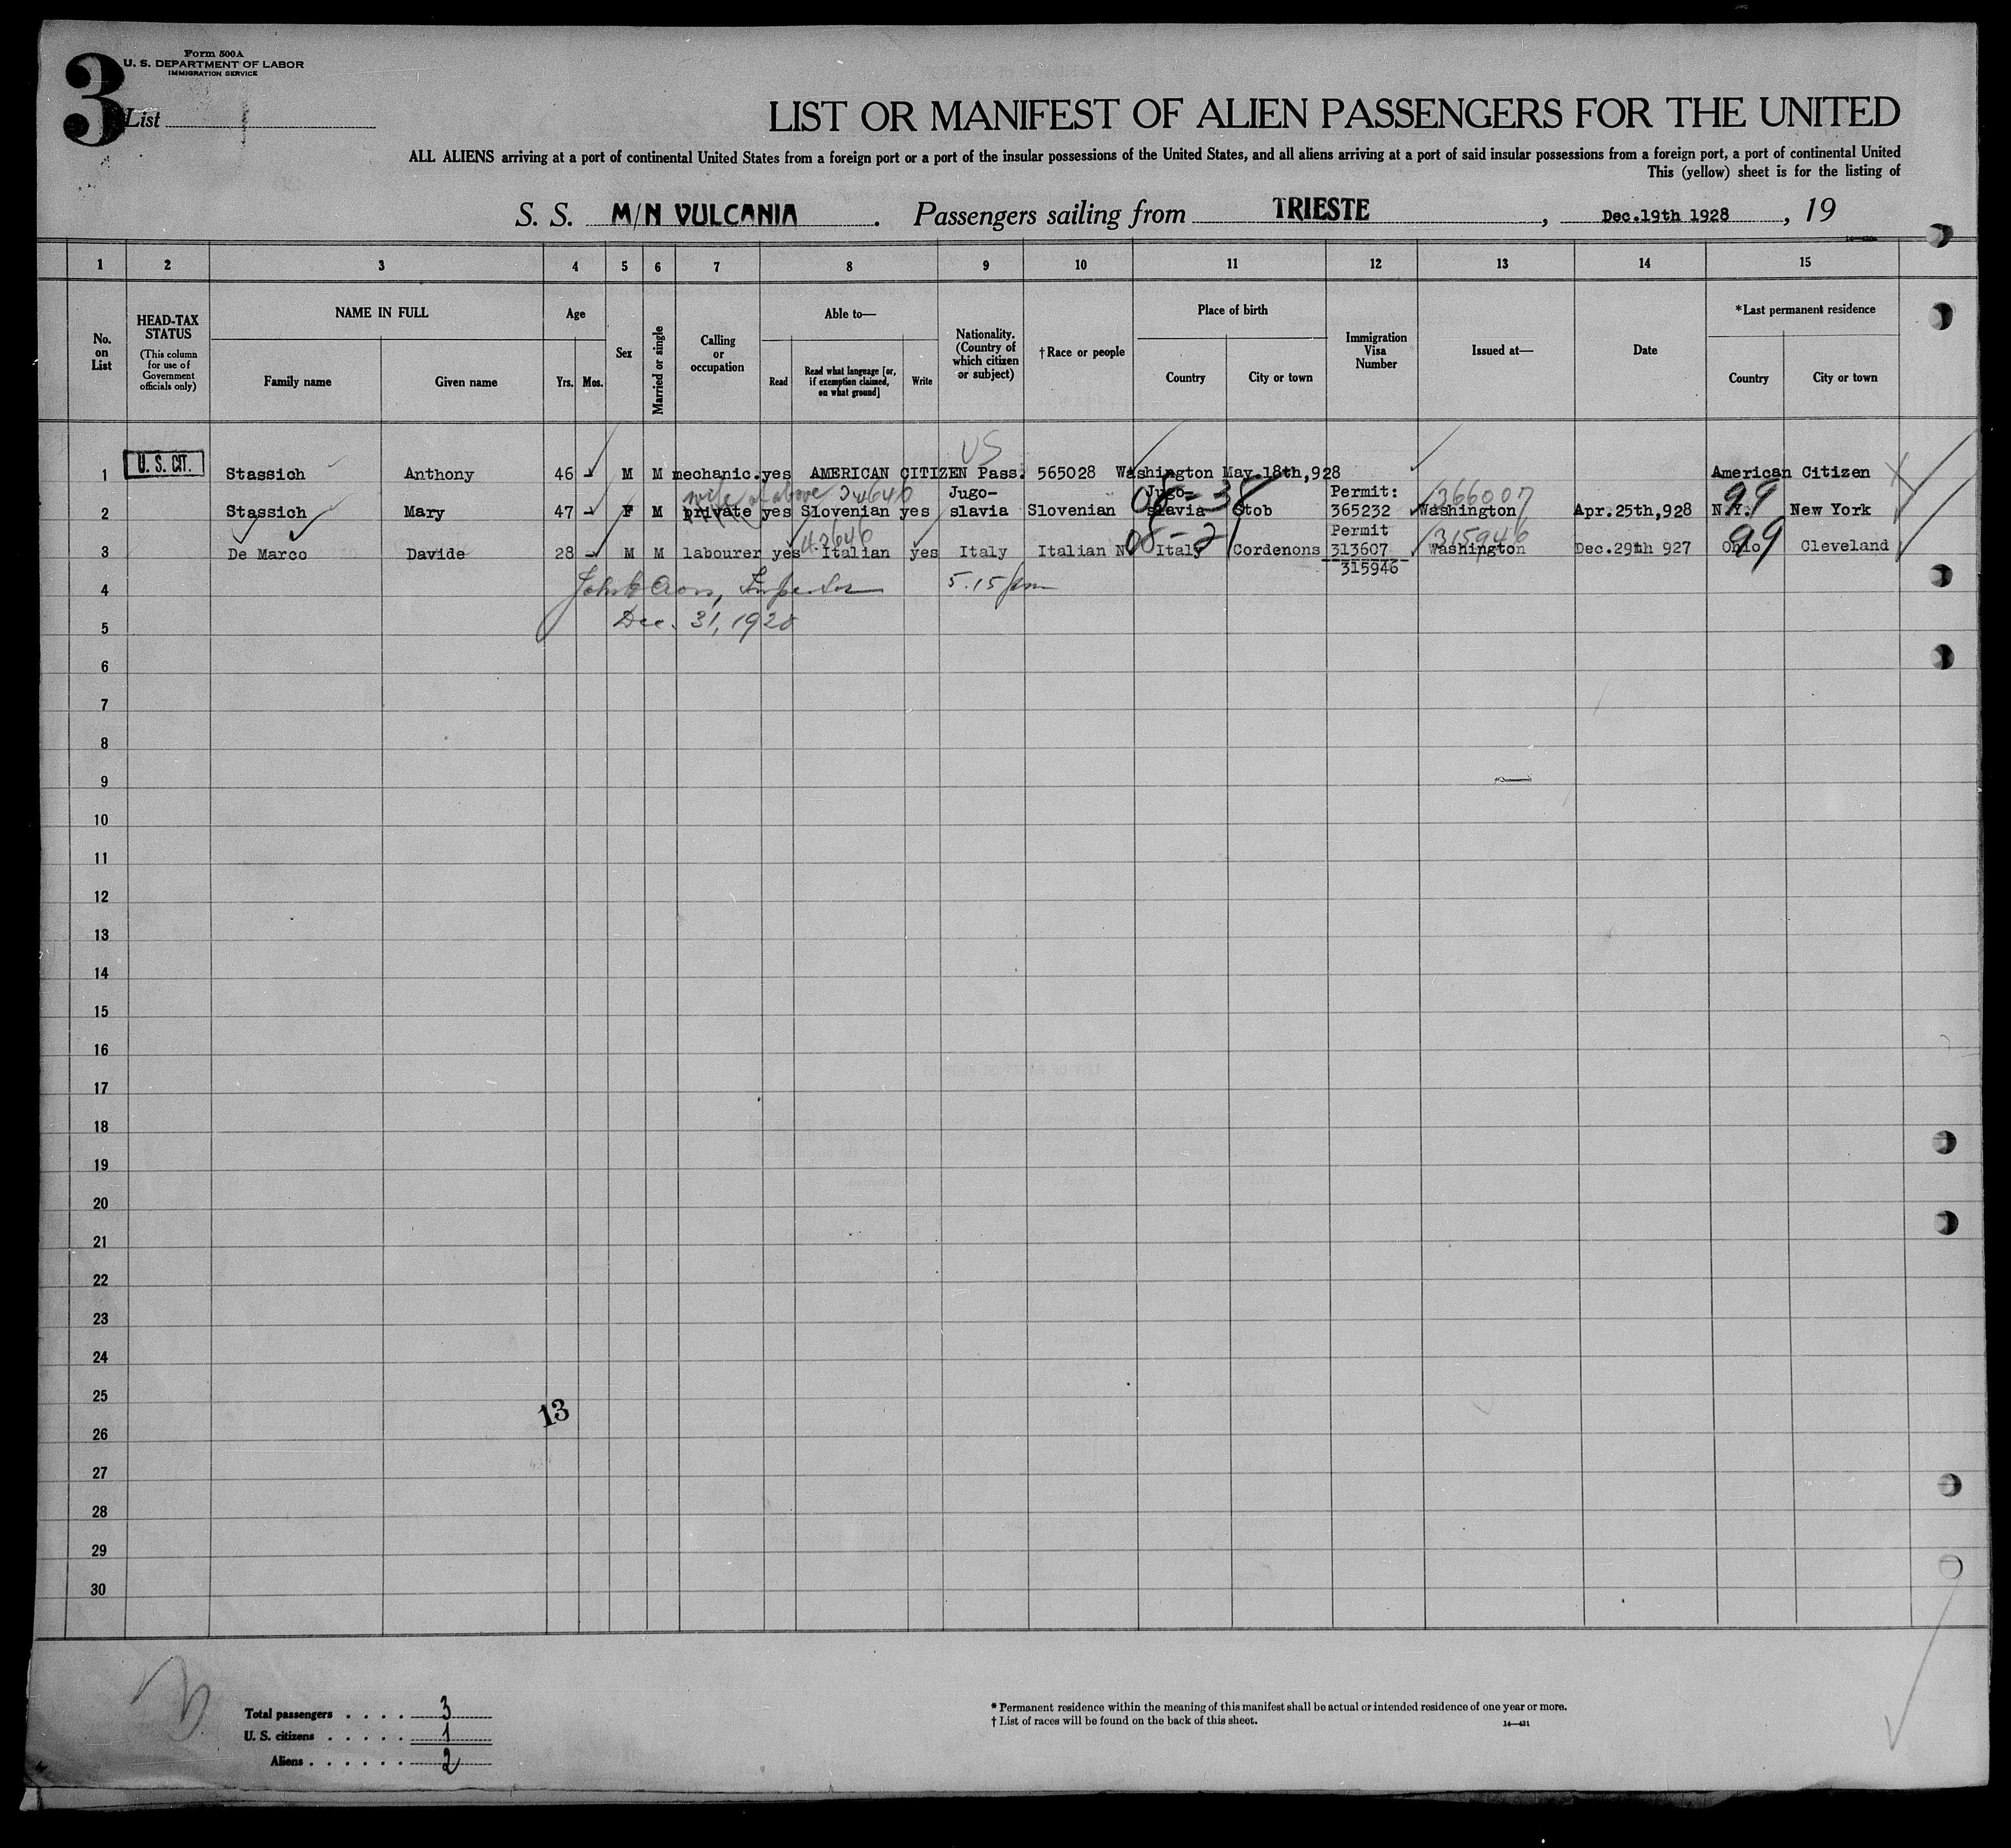 3
Form 500A
U. S. DEPARTMENT OF LABOR
IMMIGRATION SERVICE
List
LIST OR MANIFEST OF ALIEN PASSENGERS FOR THE UNITED
ALL ALIENS arriving at a port of continental United States from a foreign port or a port of the insular possessions of the United States, and all aliens arriving at a port of said insular possessions from a foreign port, a port of continental United
This (yellow) sheet is for the listing of
S. S. M/N VULCANIA. Passengers sailing from TRIESTE, Dec.19th 1928, 19
1 2 3 4 5 6 7 8 9 10 11 12 13 14 15
No. on List
HEAD-TAX STATUS
(This column for use of Government officials only)
NAME IN FULL
Family name Given name
Age
Yrs. Mos.
Sex
Married or single
Calling or occupation
Able to—
Read
Read what language [or, if exemption claimed, on what ground]
Write
Nationality. (Country of which citizen or subject)
†Race or people
Place of birth
Country City or town
Immigration Visa Number
Issued at—
Date
*Last permanent residence
Country City or town
US
1 U. S. CIT. Stassich Anthony 46 - M M mechanic. yes AMERICAN CITIZEN Pass. 565028 Washington May.18th,928 American Citizen
wife of above
2 Stassich Mary 47 - F M private yes Slovenian yes Jugo-slavia Slovenian Jugo-slavia Stob Permit: 365232 Washington Apr.25th,928 N.Y. New York
366007
08-38
99
3 De Marco Davide 28 - M M labourer yes Italian yes Italy Italian N Italy Cordenons Permit 313607 Washington Dec.29th 927 Ohio Cleveland
315946
08-21
99
315946
4 5.15 pm
5 Dec. 31, 1928
6
7
8
9
10
11
12
13
14
15
16
17
18
19
20
21
22
23
24
25
13
26
27
28
29
30
Total passengers . . . . 3
U. S. citizens . . . . . 1
Aliens . . . . . . 2
* Permanent residence within the meaning of this manifest shall be actual or intended residence of one year or more.
† List of races will be found on the back of this sheet.
14—431